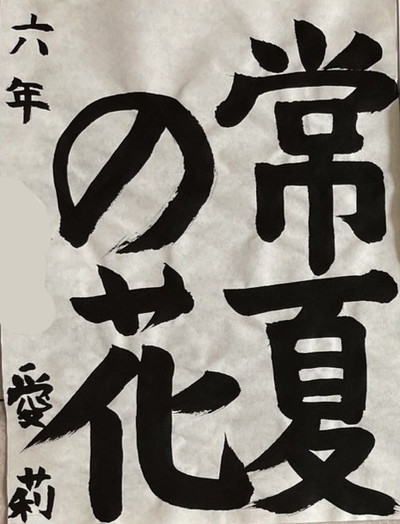 常夏
の花
六年
愛莉